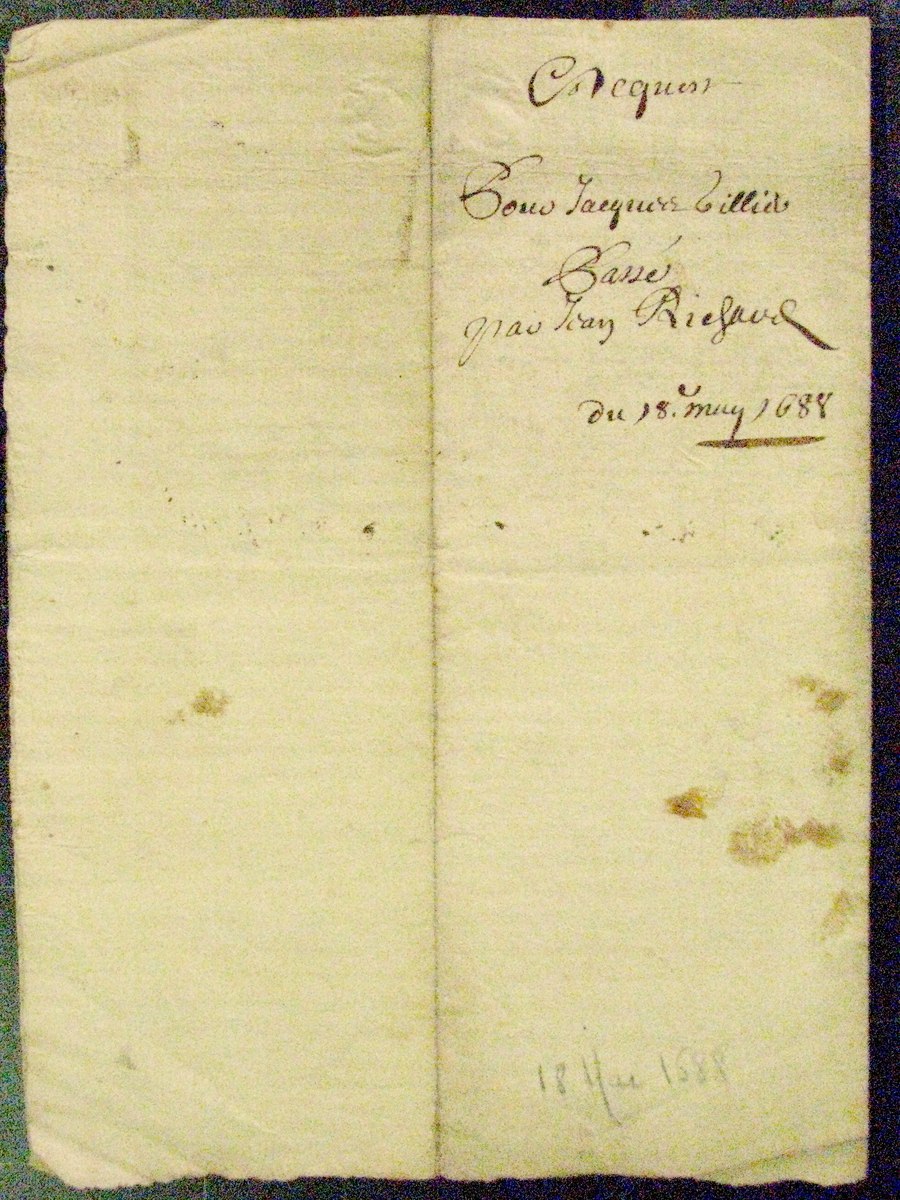 Acquest
Pour Jacques
Passé
par Jean Richard
du 18.e may 1688
18 Mai 1688